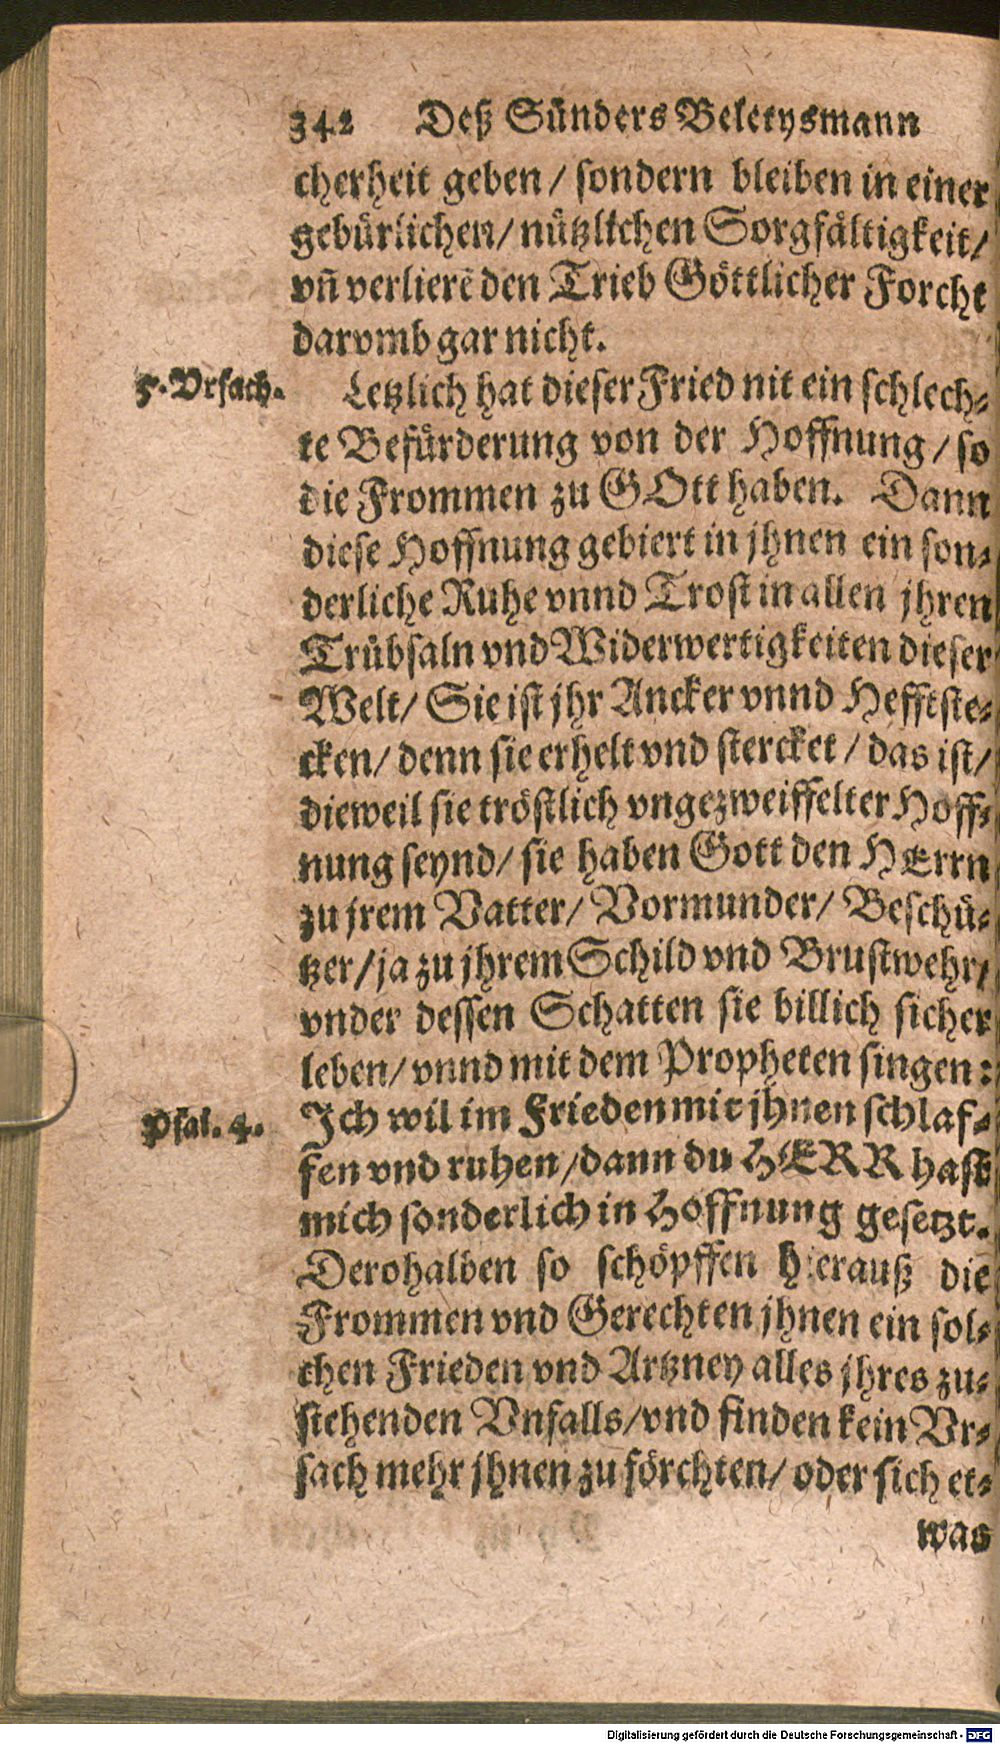 342 Deß Sünders Beleytsmann
cherheit geben / sondern bleiben in einer
gebürlichen / nützlichen Sorgfältigkeit /
vñ verlierẽ den Trieb Göttlicher Forcht
darvmb gar nicht.
5. Vrsach.
Letzlich hat dieser Fried nit ein schlech⸗
te Befürderung von der Hoffnung / so
die Frommen zu GOtt haben. Dann
diese Hoffnung gebiert in jhnen ein son⸗
derliche Ruhe vnnd Trost in allen jhren
Trübsaln vnd Widerwertigkeiten dieser
Welt / Sie ist jhr Ancker vnnd Hefftste⸗
cken / denn sie erhelt vnd stercket / das ist /
dieweil sie tröstlich vngezweiffelter Hoff⸗
nung seynd / sie haben Gott den HErrn
zu jrem Vatter / Vormunder / Beschü⸗
tzer / ja zu jhrem Schild vnd Brustwehr /
vnder dessen Schatten sie billich sicher
leben / vnnd mit dem Propheten singen:
Psal. 4.
Ich wil im Frieden mit jhnen schlaf⸗
fen vnd ruhen / dann du HERR hast
mich sonderlich in Hoffnung gesetzt.
Derohalben so schöpffen hierauß die
Frommen vnd Gerechten jhnen ein sol⸗
chen Frieden vnd Artzney alles jhres zu⸗
stehenden Vnfalls / vnd finden kein Vr⸗
sach mehr jhnen zu förchten / oder sich et⸗
was
Digitalisierung gefördert durch die Deutsche Forschungsgemeinschaft - DFG